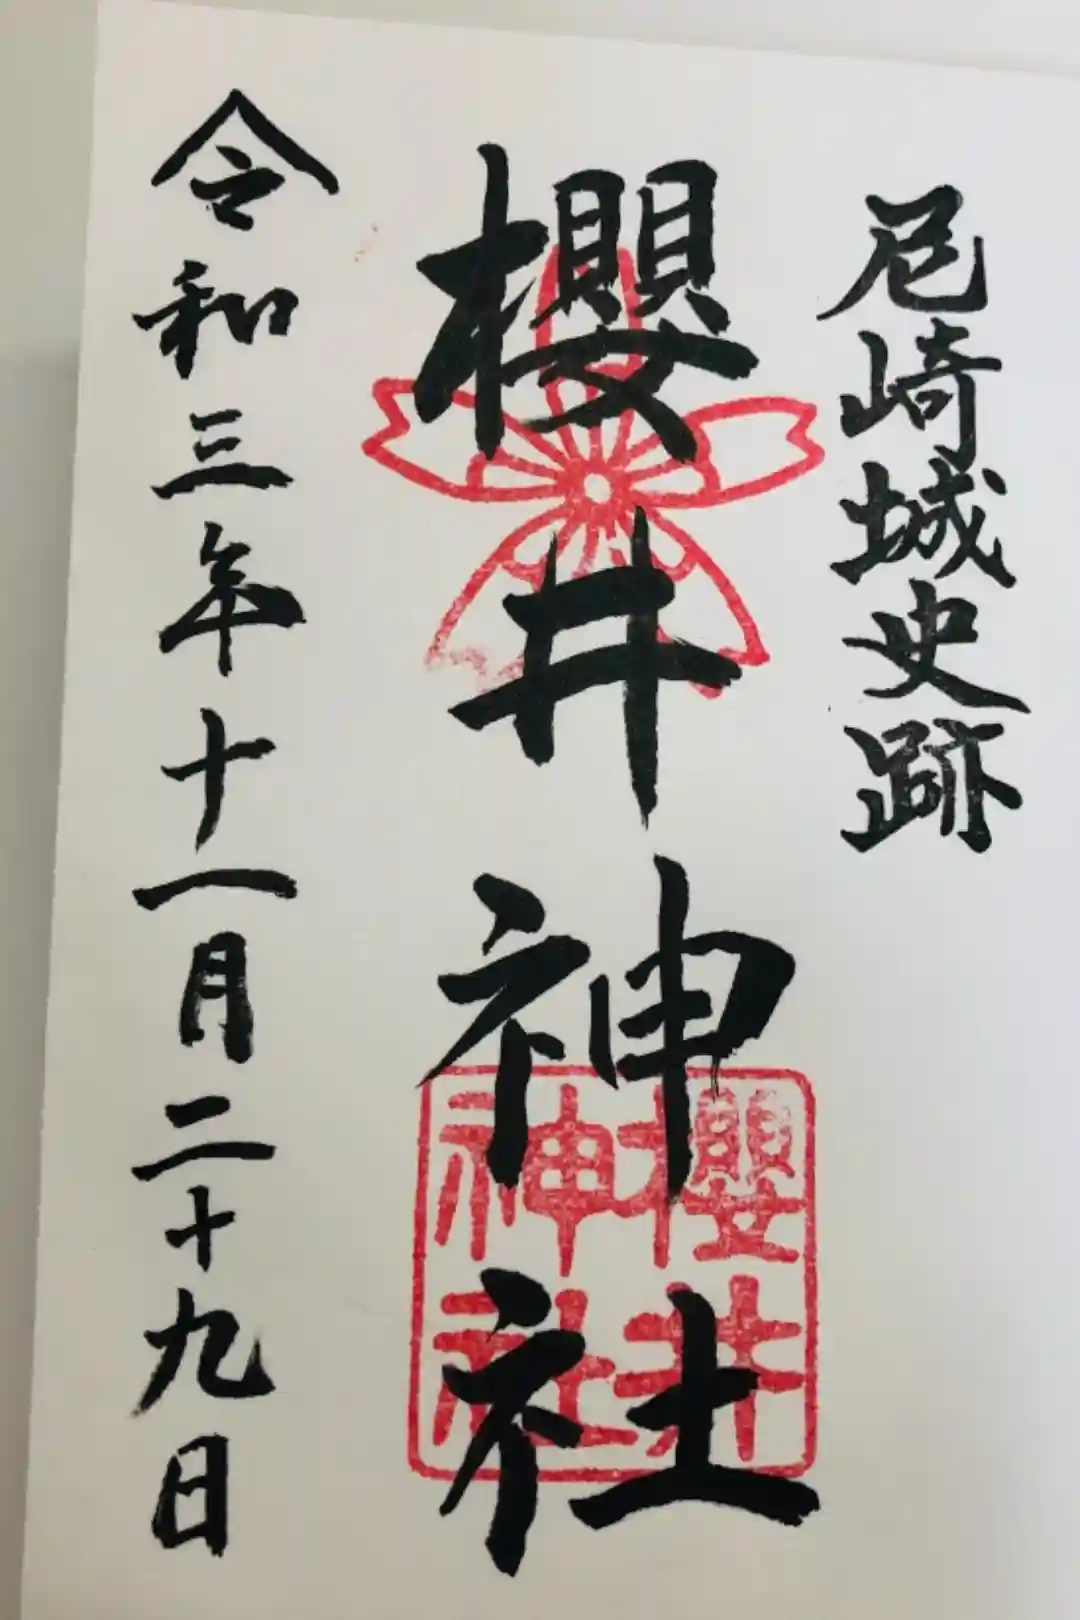 尼崎城史跡
櫻井神社
櫻井
神社
令和三年十一月二十九日